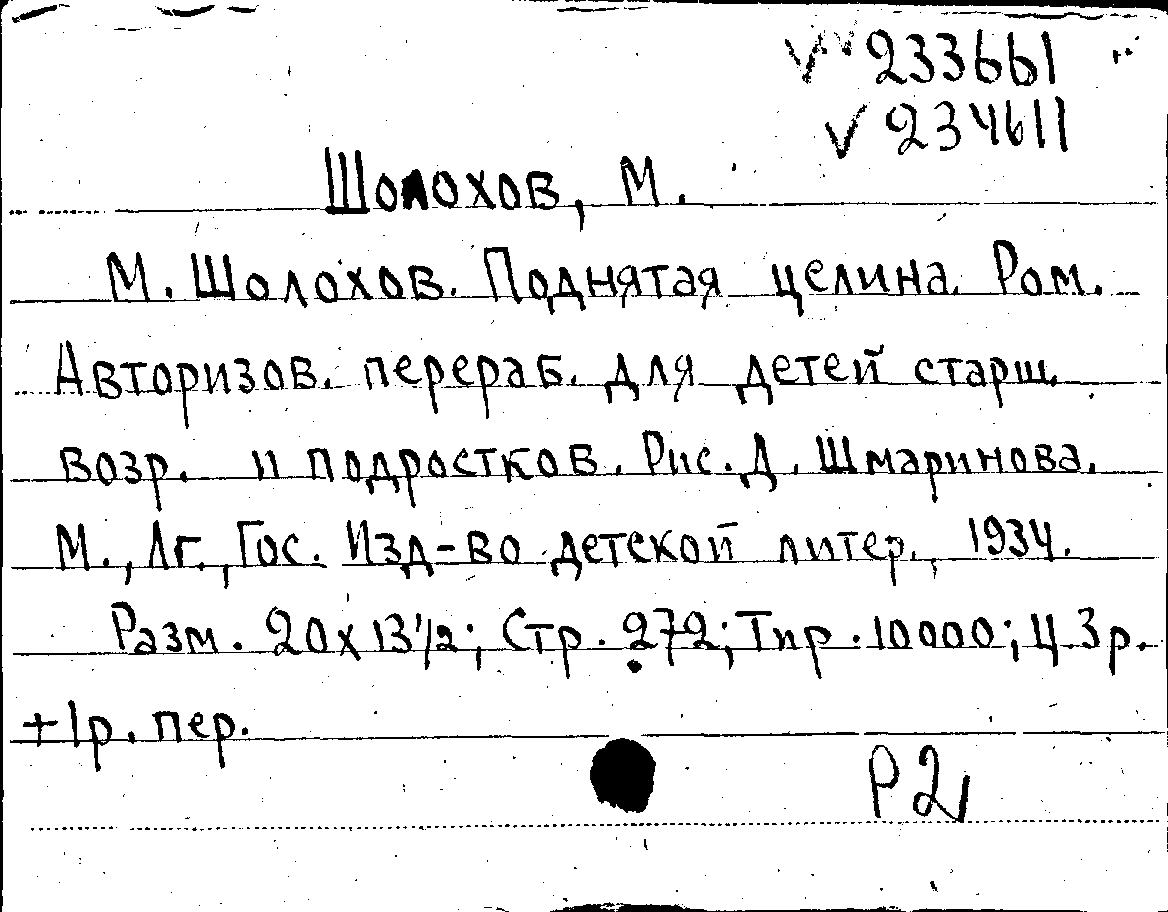 √ 233661
√ 234611
Шолохов, М.
М. Шолохов. Поднятая целина. Ром.
Авторизов. перераб. для детей старш.
возр. и подростков. Рис. Д. Шмаринова.
М., Лг., Гос. Изд-во детской литер., 1934.
Разм. 20 х 13 1/2; Стр. 272; Тир. 10000; Ц. 3 р.
+ 1 р. пер.
Р2